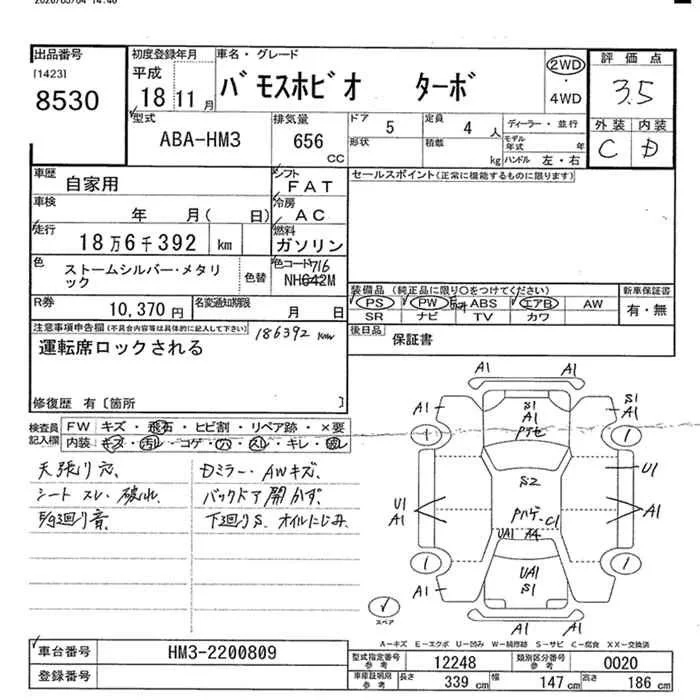 2026/03/04 14:40
出品番号
[1423]
8530
初度登録年月
平成
18 11月
車名・グレード
バモスホビオ ターボ
2WD
・
4WD
評価点
3.5
外装 内装
C D
型式
ABA-HM3
排気量
656
CC
ドア
5
定員
4 人
形状
積載
kg
ディーラー・並行
モデル年式 年
ハンドル 左・右
車歴
自家用
シフト
FAT
車検
年 月( 日)
冷房
AC
走行
18万6千392 km
燃料
ガソリン
色
ストームシルバー・メタリック
色替
色コード 716
NH642M
R券
10,370円
名変通知期限
月 日
セールスポイント(正常に機能するものに限ります)
装備品 (純正品に限り○をつけてください)
PS PW ABS エアB AW
SR ナビ TV カワ
新車保証書
有・無
後日品
保証書
注意事項申告欄(不具合内容等は具体的に記入して下さい)
186392 km
運転席ロックされる
修復歴 有〔箇所 〕
検査員記入欄
FW キズ・飛石・ヒビ割・リペア跡・×要
内装 キズ・汚れ・コゲ・穴・スレ・キレ・破レ
天張り穴、
シート スレ・破れ、
足廻り音
Dミラー・AWキズ、
バックドア開かず、
下廻りS、オイルにじみ、
A1 A1
A1
S1
A1
S1
A1
1 1
U1
S2
U1
A1
A1
C1
UA1 A4
UA1
S1
1 1
A1
A1 A1
スペア
A-キズ E-エクボ U-凹み W-補修跡 S-サビ C-腐食 XX-交換済
車台番号
HM3-2200809
登録番号
型式指定番号
参考
12248
類別区分番号
参考
0020
車庫証明用
参考
長さ
339 cm
幅
147 cm
高さ
186 cm